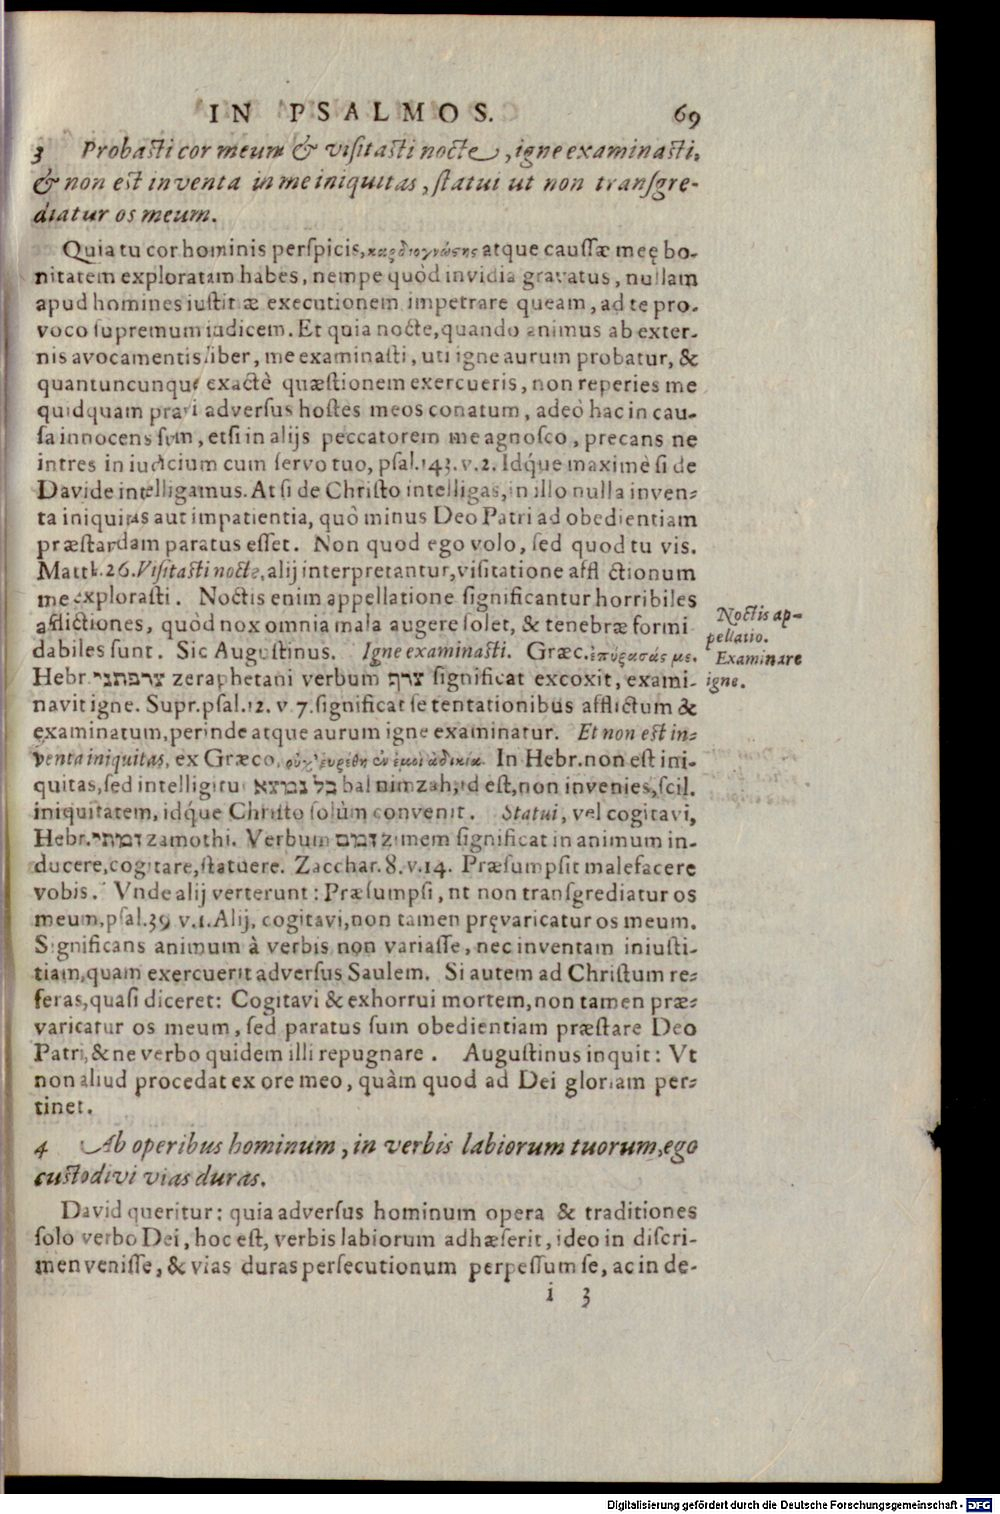 IN PSALMOS. 69
3 Probasti cor meum & visitasti nocte, igne examinasti,
& non est inventa in me iniquitas, statui ut non transgre-
diatur os meum.
Quia tu cor hominis perspicis, καρδιογνώστης atque caussæ meę bo-
nitatem exploratam habes, nempe quòd invidia gravatus, nullam
apud homines iustitiæ executionem impetrare queam, ad te pro-
voco supremum iudicem. Et quia nocte, quando animus ab exter-
nis avocamentis liber, me examinasti, uti igne aurum probatur, &
quantuncunque exactè quæstionem exercueris, non reperies me
quidquam pravi adversus hostes meos conatum, adeò hac in cau-
sa innocens sum, etsi in alijs peccatorem me agnosco, precans ne
intres in iudicium cum servo tuo, psal.143.v.2. Idq́ue maximè si de
Davide intelligamus. At si de Christo intelligas, in illo nulla inven-
ta iniquitas aut impatientia, quò minus Deo Patri ad obedientiam
præstandam paratus esset. Non quod ego volo, sed quod tu vis.
Matth.26. Visitasti nocte, alij interpretantur, visitatione afflictionum
me explorasti. Noctis enim appellatione significantur horribiles
afflictiones, quòd nox omnia mala augere solet, & tenebræ formi
dabiles sunt. Sic Augustinus. Igne examinasti. Græc. ἐπύρασάς με.
Hebr. צרפתני zeraphetani verbum צרף significat excoxit, exami-
navit igne. Supr.psal.12. v.7. significat se tentationibus afflictum &
examinatum, perinde atque aurum igne examinatur. Et non est in-
venta iniquitas, ex Græco, οὐχ' εὑρέθη ἐν ἐμοὶ ἀδικία. In Hebr. non est ini-
quitas, sed intelligitur בל נמצא bal nimzah, id est, non invenies, scil.
iniquitatem, idq́ue Christo solùm convenit. Statui, vel cogitavi,
Hebr. זמתי zamothi. Verbum זמם zimem significat in animum in-
ducere, cogitare, statuere. Zacchar. 8. v.14. Præsumpsit malefacere
vobis. Vnde alij verterunt: Præsumpsi, nt non transgrediatur os
meum, psal.39 v.1. Alij, cogitavi, non tamen pręvaricatur os meum.
Significans animum à verbis non variasse, nec inventam iniusti-
tiam, quam exercuerit adversus Saulem. Si autem ad Christum re-
feras, quasi diceret: Cogitavi & exhorrui mortem, non tamen præ-
varicatur os meum, sed paratus sum obedientiam præstare Deo
Patri, & ne verbo quidem illi repugnare. Augustinus inquit: Vt
non aliud procedat ex ore meo, quàm quod ad Dei gloriam per-
tinet.
Noctis ap-
pellatio.
Examinare
igne.
4 Ab operibus hominum, in verbis labiorum tuorum, ego
custodivi vias duras.
David queritur: quia adversus hominum opera & traditiones
solo verbo Dei, hoc est, verbis labiorum adhæserit, ideo in discri-
men venisse, & vias duras persecutionum perpessum se, ac in de-
i 3
Digitalisierung gefördert durch die Deutsche Forschungsgemeinschaft - DFG